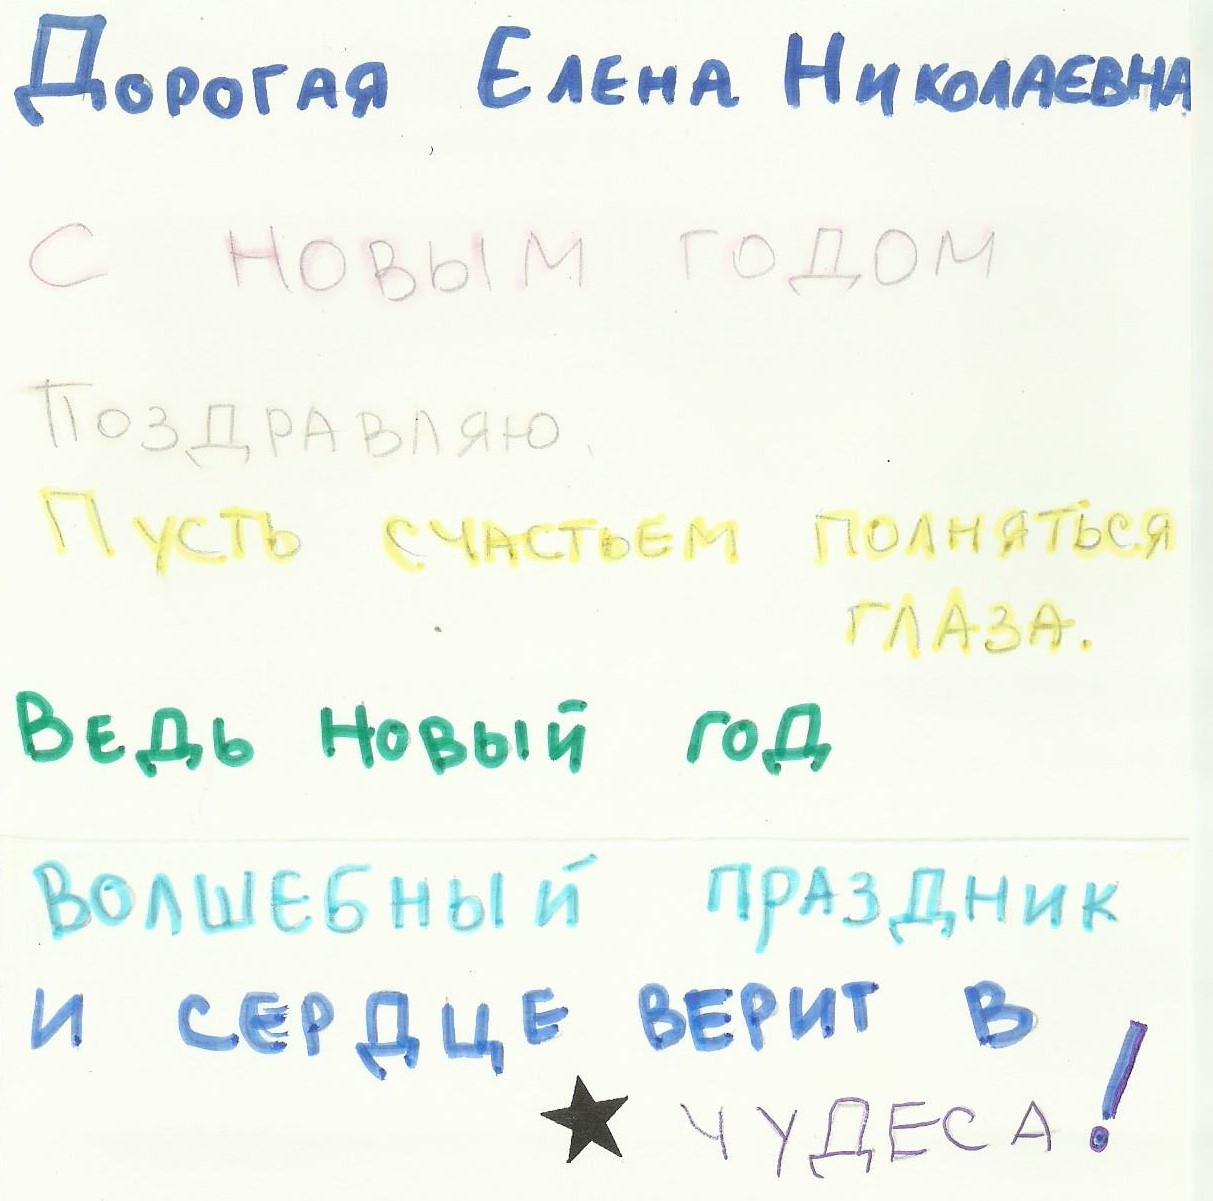 Дорогая Елена Николаевна
С новым годом
Поздравляю.
Пусть счастьем полняться
глаза.
Ведь новый год
волшебный праздник
и сердце верит в
чудеса!